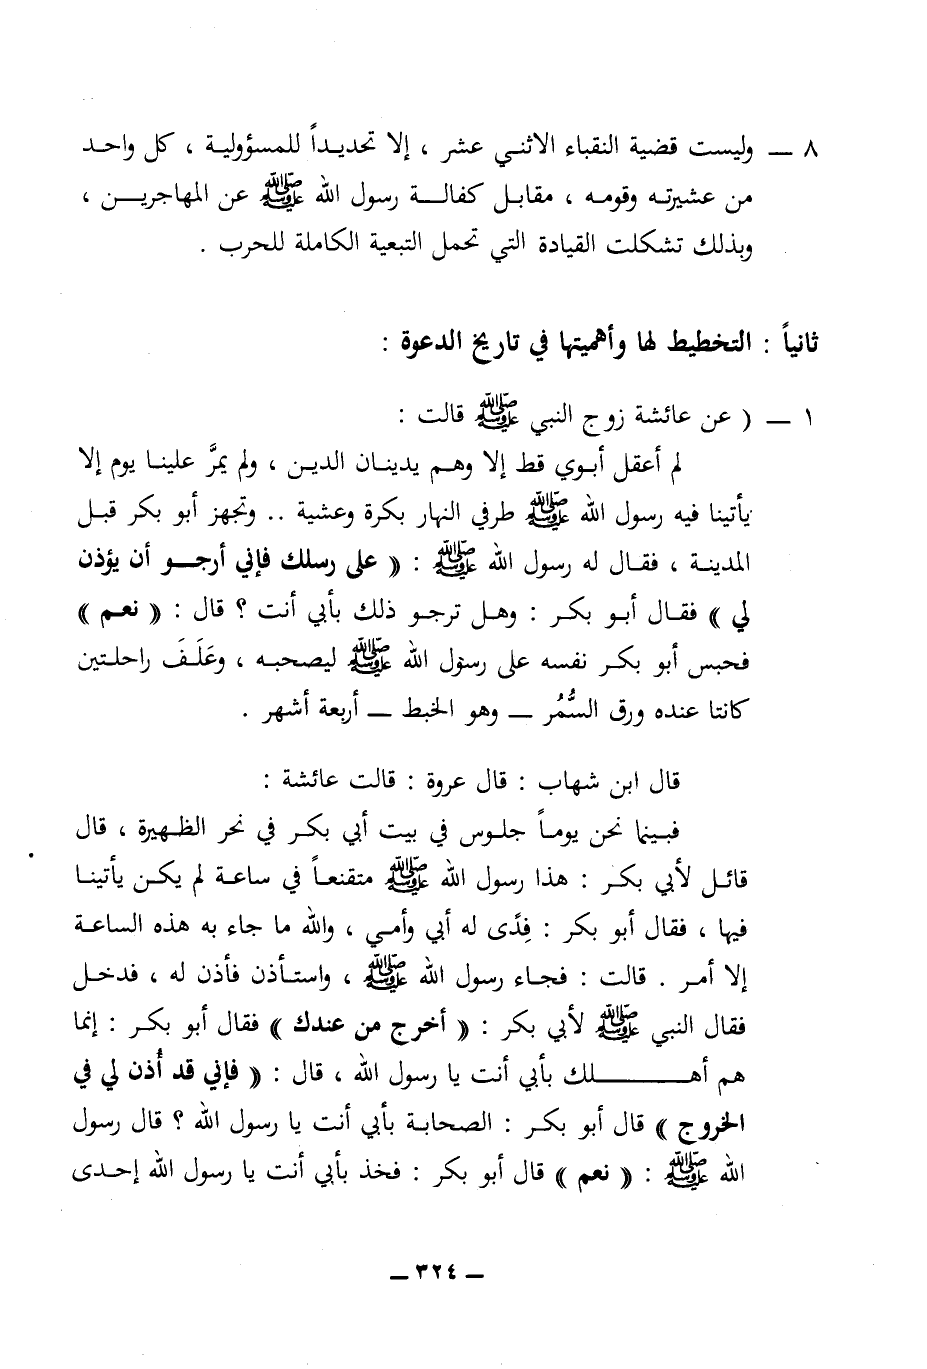 ٨ ــ وليست قضية النقباء الاثني عشر ، إلا تحديداً للمسؤولية ، كل واحد
من عشيرته وقومه ، مقابل كفالة رسول الله ﷺ عن المهاجرين ،
وبذلك تشكلت القيادة التي تحمل التبعية الكاملة للحرب .
ثانياً : التخطيط لها وأهميتها في تاريخ الدعوة :
١ ــ ( عن عائشة زوج النبي ﷺ قالت :
لم أعقل أبوي قط إلا وهم يدينان الدين ، ولم يمرَّ علينا يوم إلا
يأتينا فيه رسول الله ﷺ طرفي النهار بكرة وعشية .. وتجهز أبو بكر قبل
المدينة ، فقال له رسول الله ﷺ : « على رسلك فإني أرجو أن يؤذن
لي » فقال أبو بكر : وهل ترجو ذلك بأبي أنت ؟ قال : « نعم »
فحبس أبو بكر نفسه على رسول الله ﷺ ليصحبه ، وعَلَفَ راحلتين
كانتا عنده ورق السُّمُر ــ وهو الخبط ــ أربعة أشهر .
قال ابن شهاب : قال عروة : قالت عائشة :
فبينما نحن يوماً جلوس في بيت أبي بكر في نحر الظهيرة ، قال
قائل لأبي بكر : هذا رسول الله ﷺ متقنعاً في ساعة لم يكن يأتينا
فيها ، فقال أبو بكر : فِدًى له أبي وأمي ، والله ما جاء به هذه الساعة
إلا أمر . قالت : فجاء رسول الله ﷺ ، واستأذن فأذن له ، فدخل
فقال النبي ﷺ لأبي بكر : « أخرج من عندك » فقال أبو بكر : إنما
هم أهلك بأبي أنت يا رسول الله ، قال : « فإني قد أُذن لي في
الخروج » قال أبو بكر : الصحابة بأبي أنت يا رسول الله ؟ قال رسول
الله ﷺ : « نعم » قال أبو بكر : فخذ بأبي أنت يا رسول الله إحدى
ــ ٣٢٤ ــ